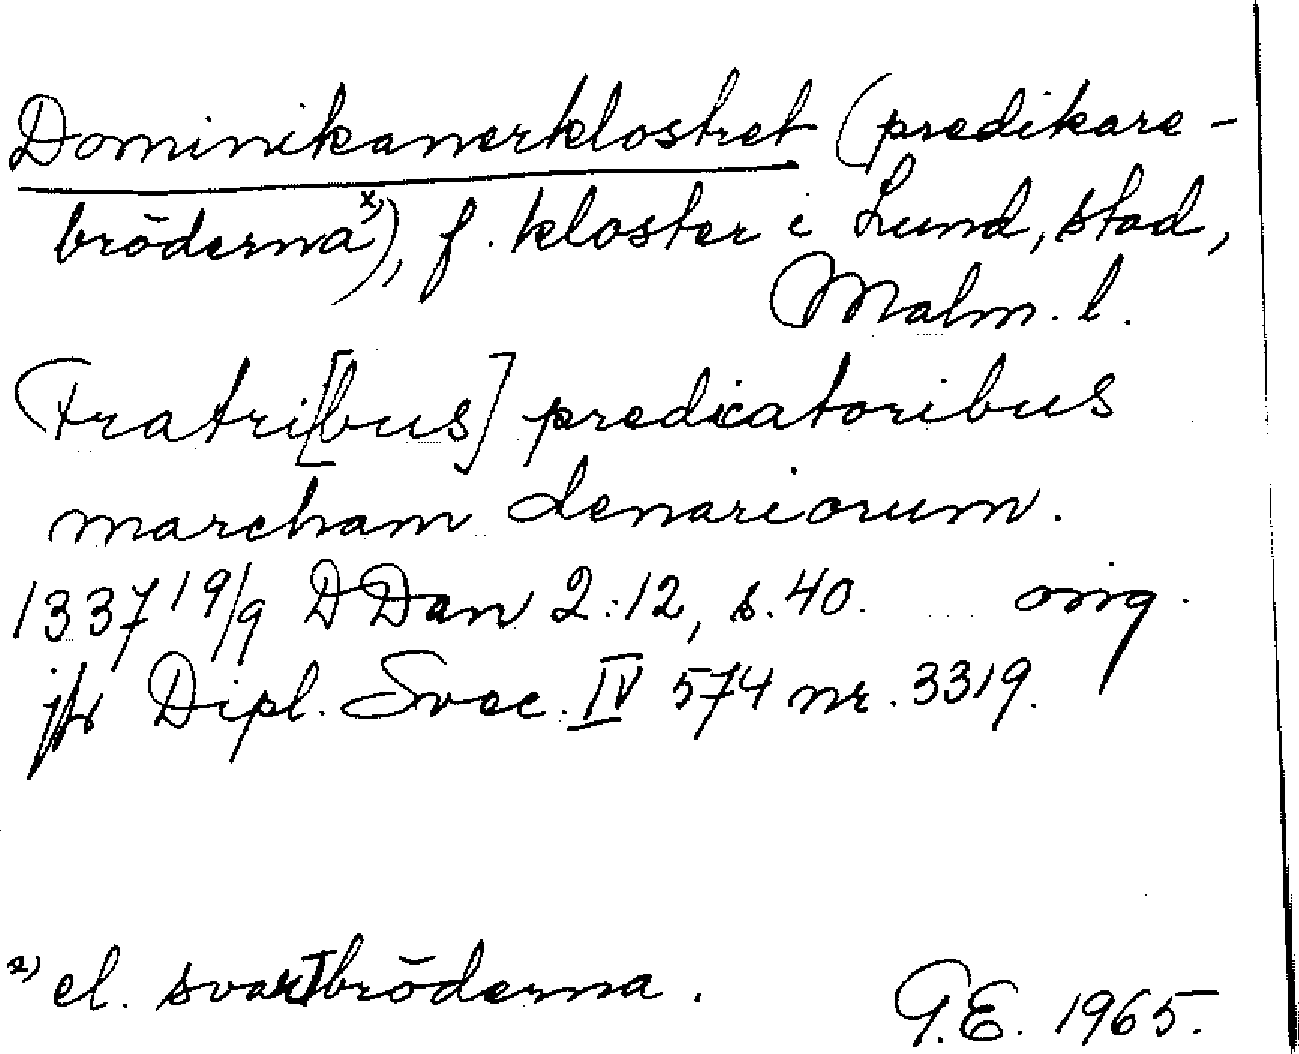 Dominikanerklostret (predikare-
bröderna x)), f. kloster i Lund, stad,
Malm. l.
Fratri[bus] predicatoribus
marcham denariorum.
1337 19/9 DDan 2:12, s. 40. orig.
jfr Dipl. Svec. IV 574 nr. 3319.
x) el. svartbröderna.
G.E. 1965.